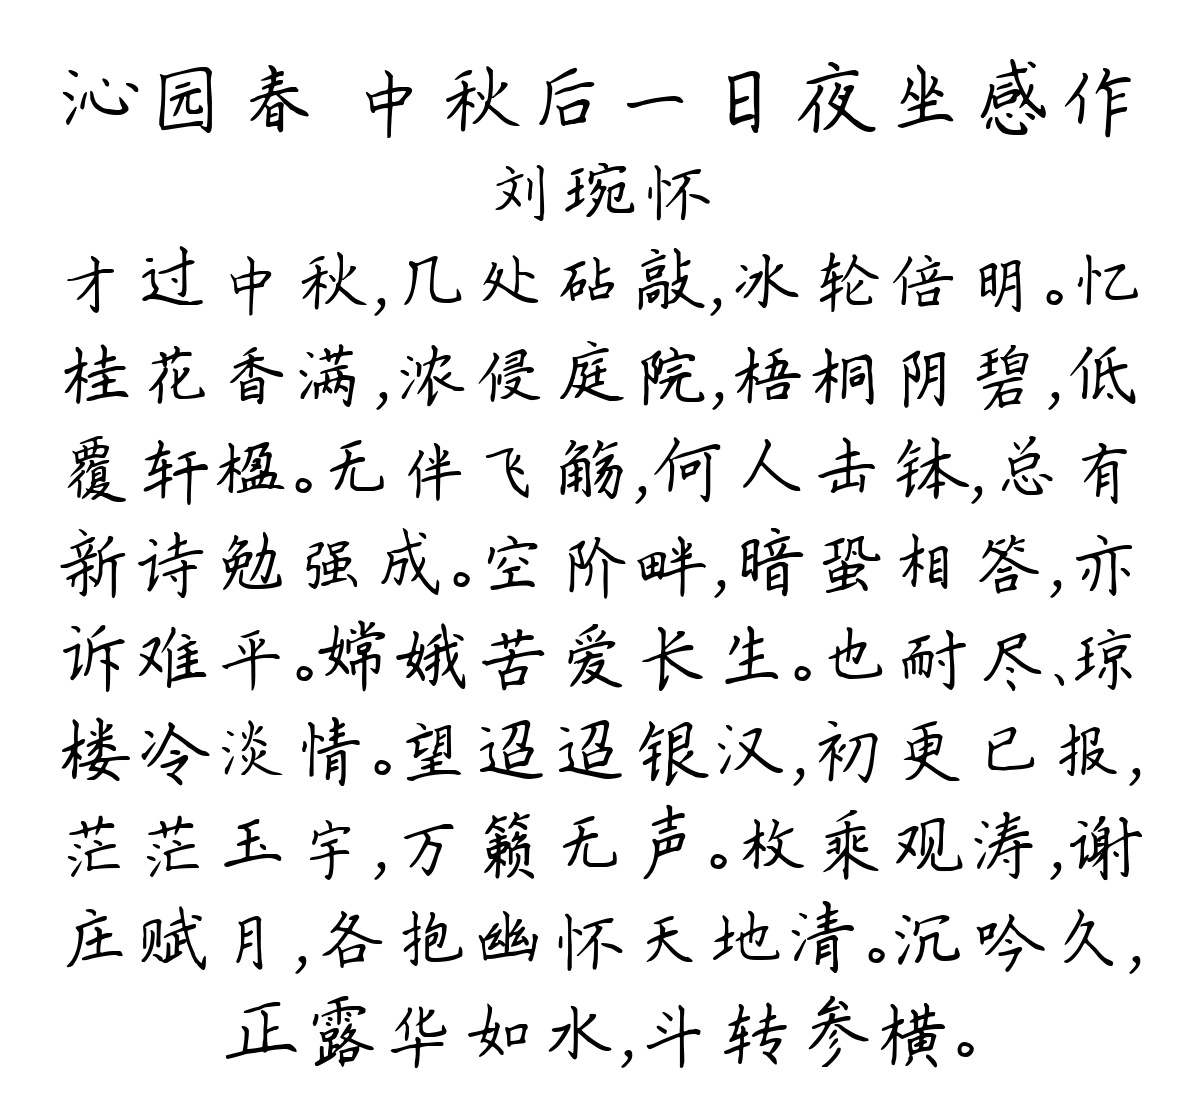 沁园春 中秋后一日夜坐感作
刘琬怀
才过中秋,几处砧敲,冰轮倍明。忆
桂花香满,浓侵庭院,梧桐阴碧,低
覆轩楹。无伴飞觞,何人击钵,总有
新诗勉强成。空阶畔,暗蛩相答,亦
诉难平。嫦娥苦爱长生。也耐尽、琼
楼冷淡情。望迢迢银汉,初更已报,
茫茫玉宇,万籁无声。枚乘观涛,谢
庄赋月,各抱幽怀天地清。沉吟久,
正露华如水,斗转参横。